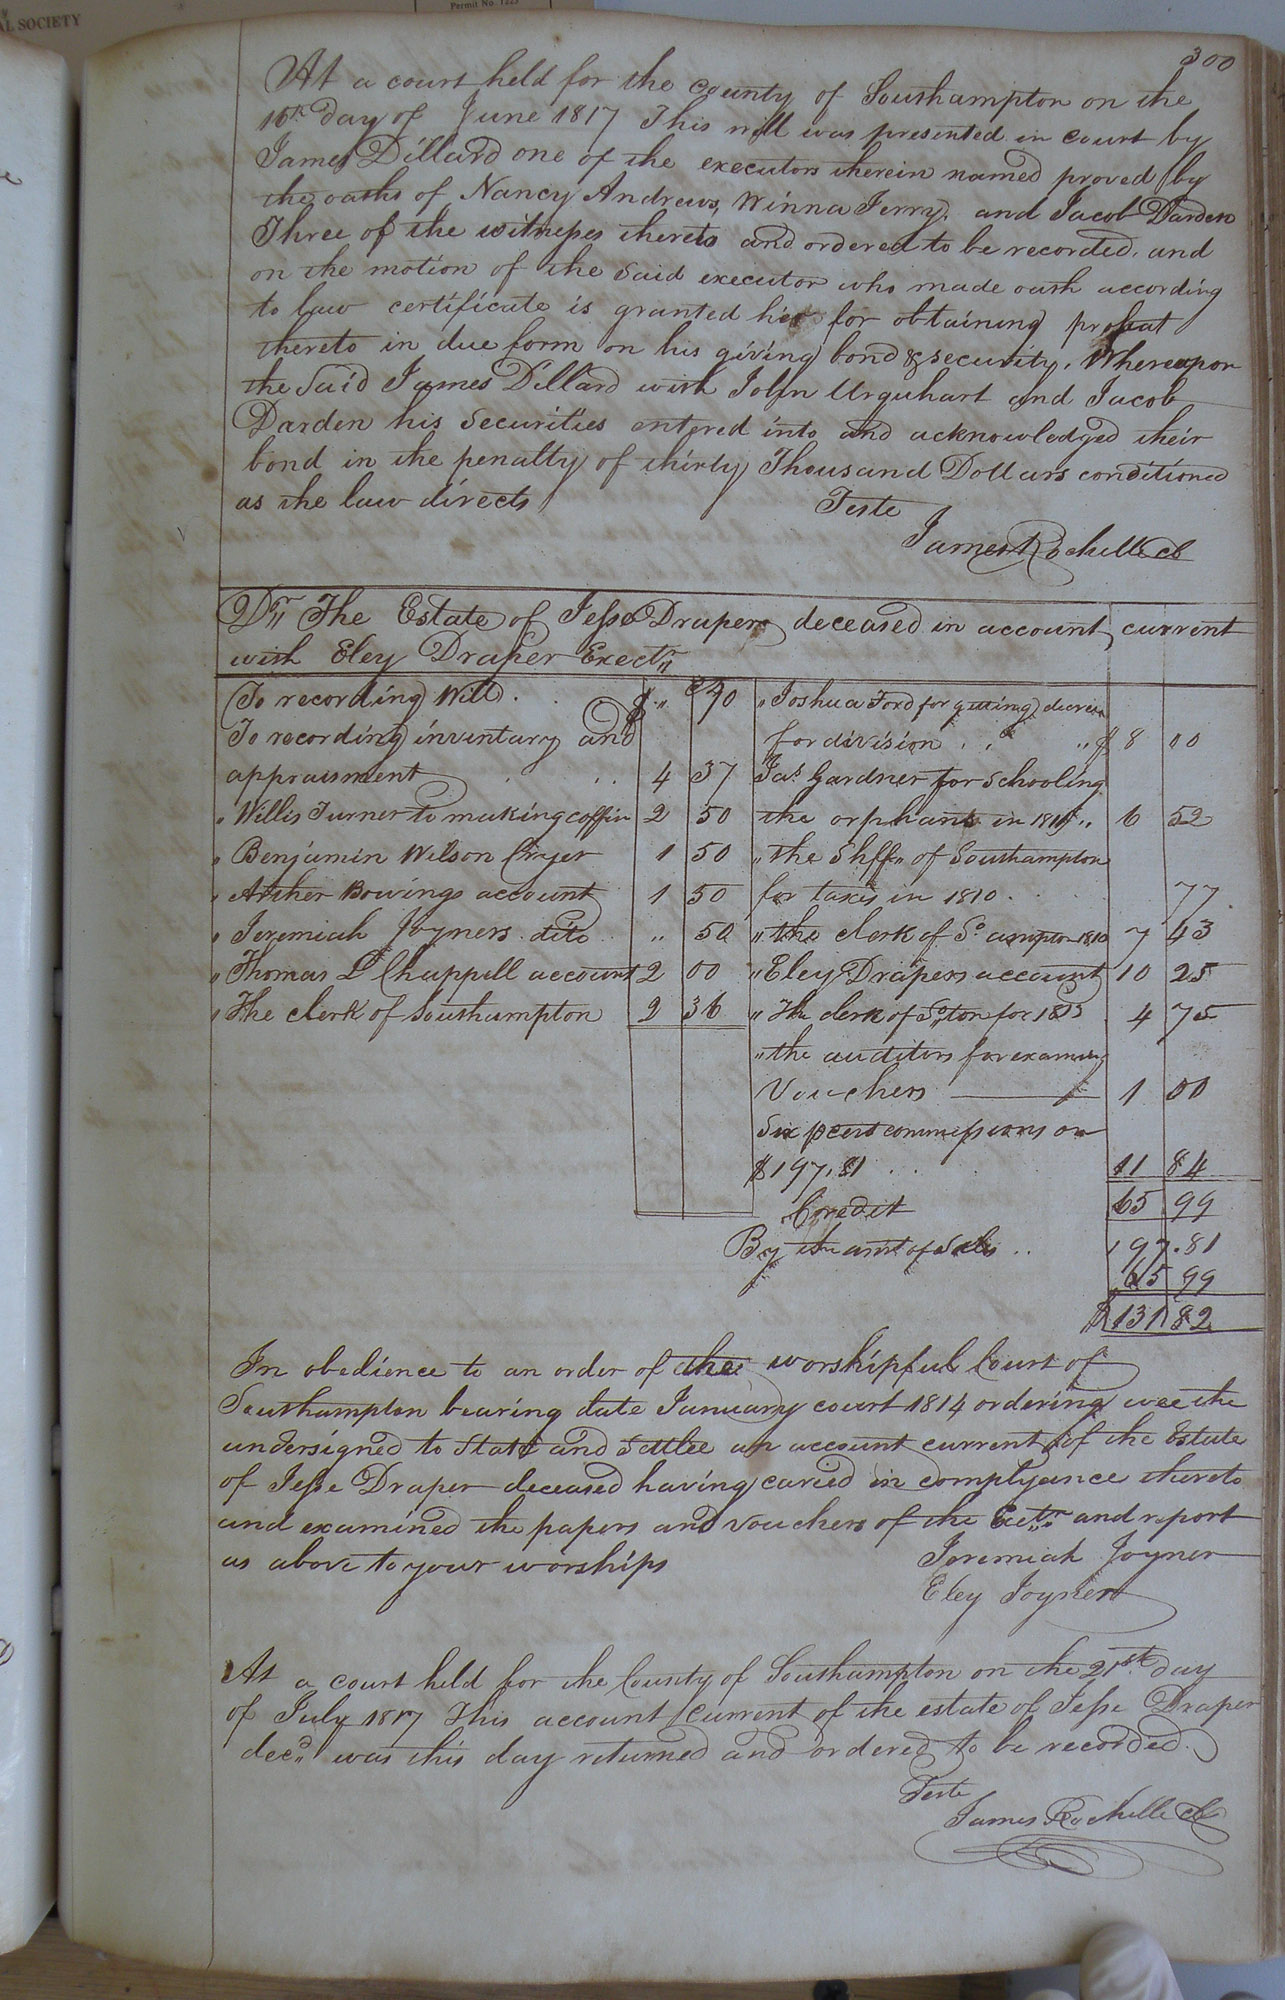 AL SOCIETY
Permit No. 1225
300
At a court held for the County of Southampton on the
16th day of June 1817 This will was presented in court by
James Dillard one of the executors therein named proved by
the oaths of Nancy Andrews, Winna Terry, and Jacob Darden
Three of the witnesses thereto and ordered to be recorded. and
on the motion of the said executor who made oath according
to law certificate is granted him for obtaining probat
thereto in due form on his giving bond & security. Whereupon
the said James Dillard with John Urquhart and Jacob
Darden his Securities entered into and acknowledged their
bond in the penalty of thirty Thousand Dollars conditioned
as the law directs
Teste
James Rochelle cl
Dr. The Estate of Jesse Draper deceased in account current
with Eley Draper Exectr.
To recording Will . $ " 90
To recording inventary and
appraisment . . . 4 37
" Willis Turner to making coffin 2 50
" Benjamin Wilson Cryer 1 50
" Arther Bowings account 1 50
" Jeremiah Joyners dito " 50
" Thomas L Chappell account 2 00
" The clerk of Southampton 2 36
" Joshua Ford for getting decree
for division . . " $ 8 00
Jas. Gardner for schooling
the orphans in 1811 " 6 52
" the Shff" of Southampton
for taxes in 1810 . 77
" the clerk of So ampton 1810 7 43
" Eley Drapers account 10 25
" The clerk of So,,ton for 1813 4 75
" the auditors for examing
Vouchers 1 00
Six pcent commissions on
$197.81 . . 11 84
65 99
Credit
By the amt of Sales . . 197.81
65 99
$ 131 82
In obedience to an order of the worshipful Court of
Southampton bearing date January court 1814 ordering wee the
undersigned to State and Settlee an account current of the Estate
of Jesse Draper deceased having caried in complyance thereto
and examined the papers and vouchers of the Exetr. and report
as above to your worships
Jeremiah Joyner
Eley Joyner
At a court held for the County of Southampton on the 21st day
of July 1817 This account Current of the estate of Jesse Draper
decd. was this day returned and ordered to be recorded.
Teste
James Rochelle Cl